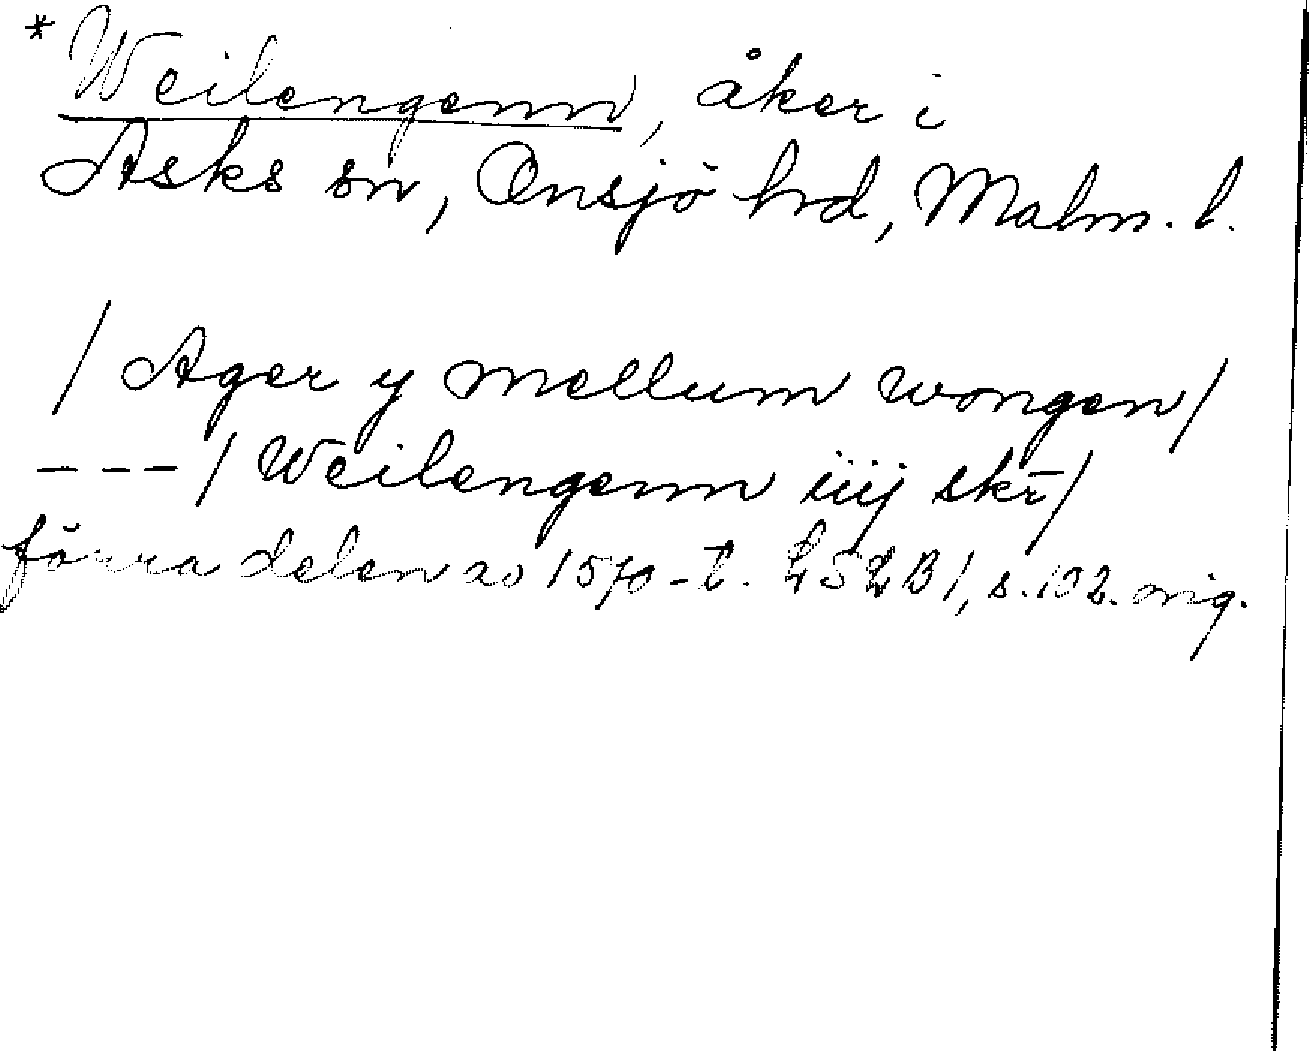 * Weilengenn, åker i
Asks sn, Onsjö hrd, Malm. l.
/ Ager y mellum wongen /
- - - / Weilengenn iiij skr̄ /
förra delen av 1570-t. L 52 B 1, s. 102. orig.